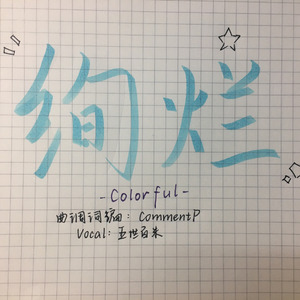 绚烂
-Colorful-
曲调词编曲：CommentP
Vocal：亚世百米